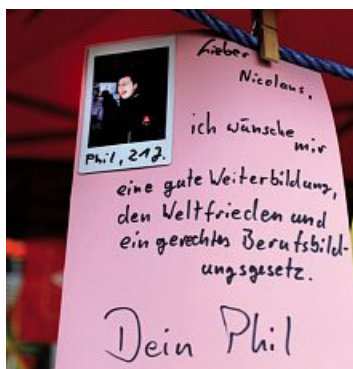 Lieber
Nicolaus,
Phil, 21J.
ich wünsche
mir
eine gute Weiterbildung,
den Weltfrieden und
ein gerechtes Berufsbild-
ungsgesetz.
Dein Phil